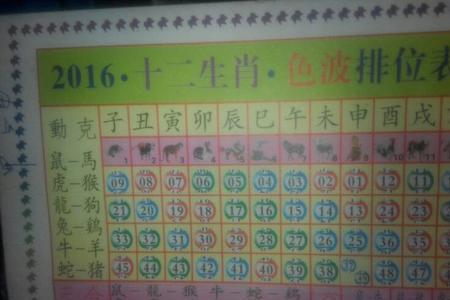 2016·十二生肖·色波排位表
動 克 子 丑 寅 卯 辰 巳 午 未 申 酉 戌
鼠-馬
虎-猴 09 08 07 06 05 04 03 02 01 12 11
龍-狗 21 20 19 18 17 16 15 14 13 24 23
兔-鷄 33 32 31 30 29 28 27 26 25 36 35
牛-羊
蛇-豬 45 44 43 42 41 40 39 38 48 47
鼠-龍-猴 牛-蛇-鷄